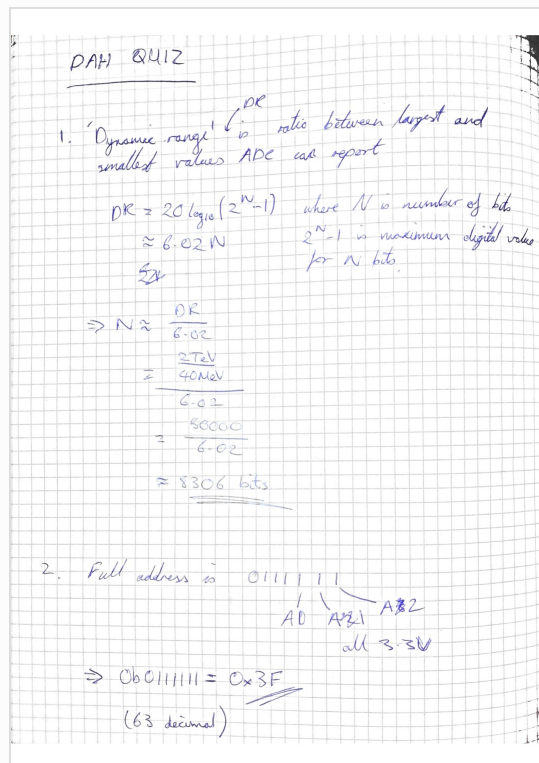 DAH QUIZ
DR
1. 'Dynamic range' is ratio between largest and
smallest values ADC can report
DR = 20 log₁₀(2ᴺ-1) where N is number of bits
≈ 6.02 N 2ᴺ-1 is maximum digital value
for N bits
⇒ N ≈ DR / 6.02
= 2TeV / 40MeV / 6.02
= 50000 / 6.02
≈ 8306 bits
2. Full address is 0111 1 1 1
A0 A1 A2
all 3.3V
⇒ 0b0111111 = 0x3F
(63 decimal)